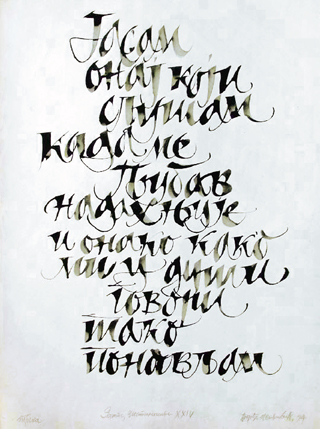 Ја сам
онај који
слушам
када ме
Љубав
надахњује
и онако како
ми у души
говори
тако
понављам
XXIV